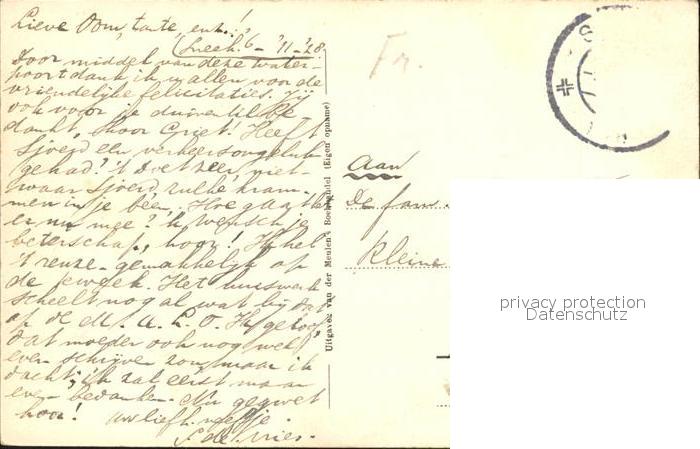 Lieve Oom, tante, enz.!
Sneek. 6 - '11 - '28
Door middel van deze water-
poort dank ik u allen voor de
vriendelijke felicitaties. Jij
ook voor je
dankt, hoor Griet! Heeft
Sjoerd een verkeersongeluk
gehad? 't Doet zeer, niet-
waar Sjoerd zulke kram-
men in je been. Hoe gaat het
er nu mee? 'k Wensch je
beterschap, hoor! Ik heb
't reuze-gemakkelijk op
de kweek. Het huiswerk
scheelt nogal wat bij dat
op de M.U.L.O. Ik geloof
dat moeder ook nog wel
even schrijven zou, maar ik
dacht, ik zal eerst maar
even bedanken. Nu gegroet
hoor!
uw liefh. neefje.
S. de Vries.
Uitgave van der Meulen's Boekhandel (Eigen opname)
Fr.
Aan
De fam.
Kleine
privacy protection
Datenschutz